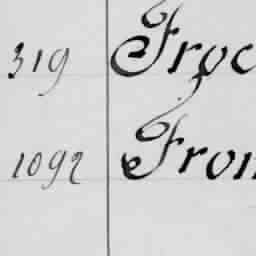 319 Froc
1092 Fron